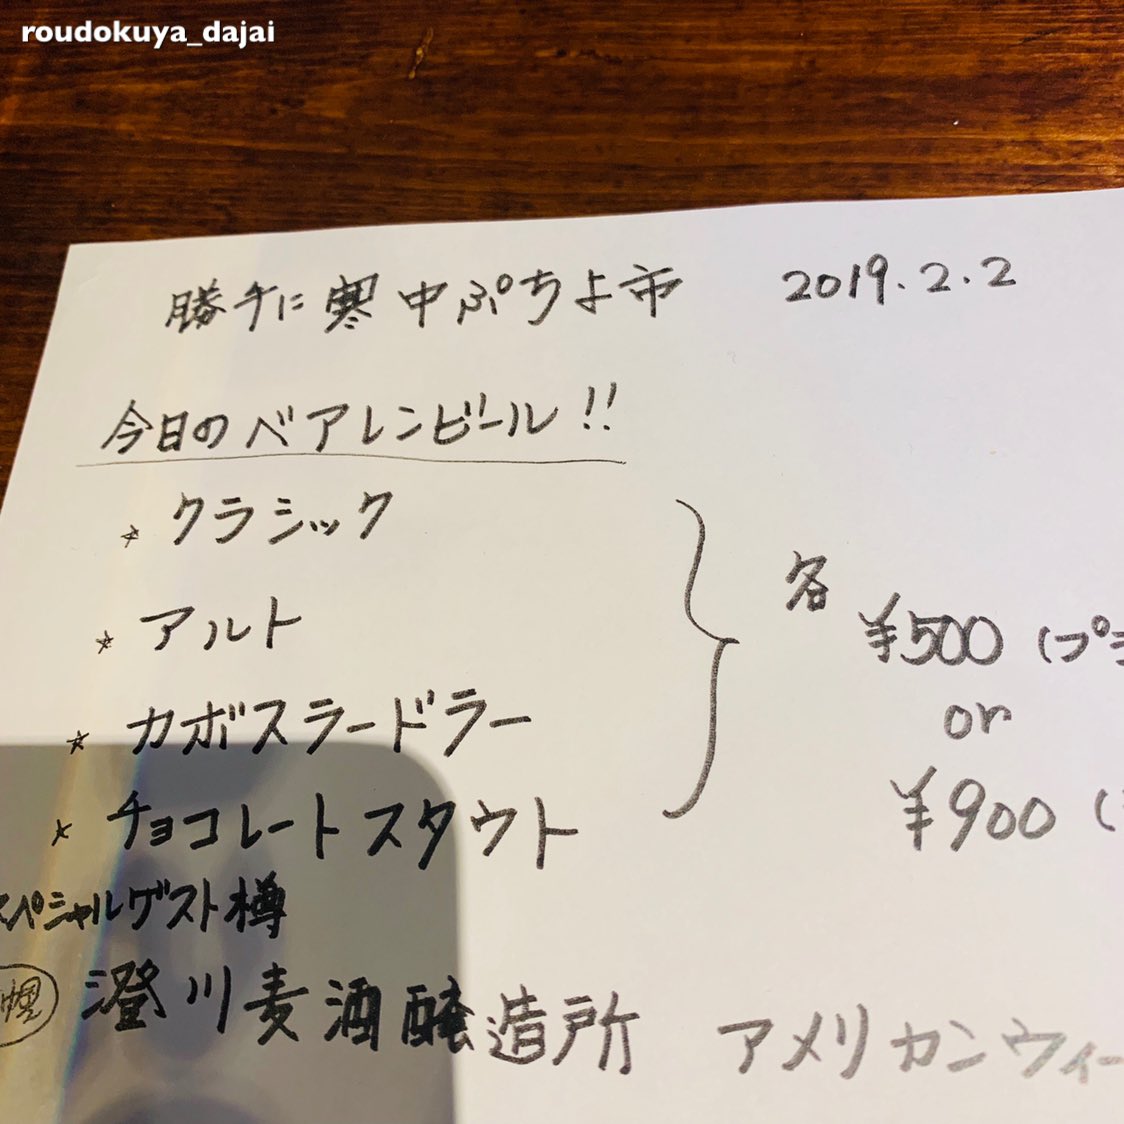 roudokuya_dajai
勝手に寒中ぷちよ市 2019.2.2
今日のベアレンビール!!
★クラシック
★アルト
★カボスラードラー
★チョコレートスタウト
各
¥500(プラ
or
¥900(
スペシャルゲスト樽
幌 澄川麦酒醸造所 アメリカンウィー